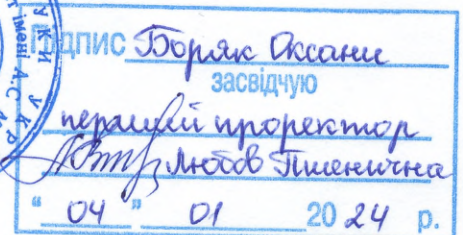 Підпис Боряк Оксани
засвідчую
перший проректор
Любов Пшенична
"04" 01 2024 р.
УКИ УКР
імені А.С. М